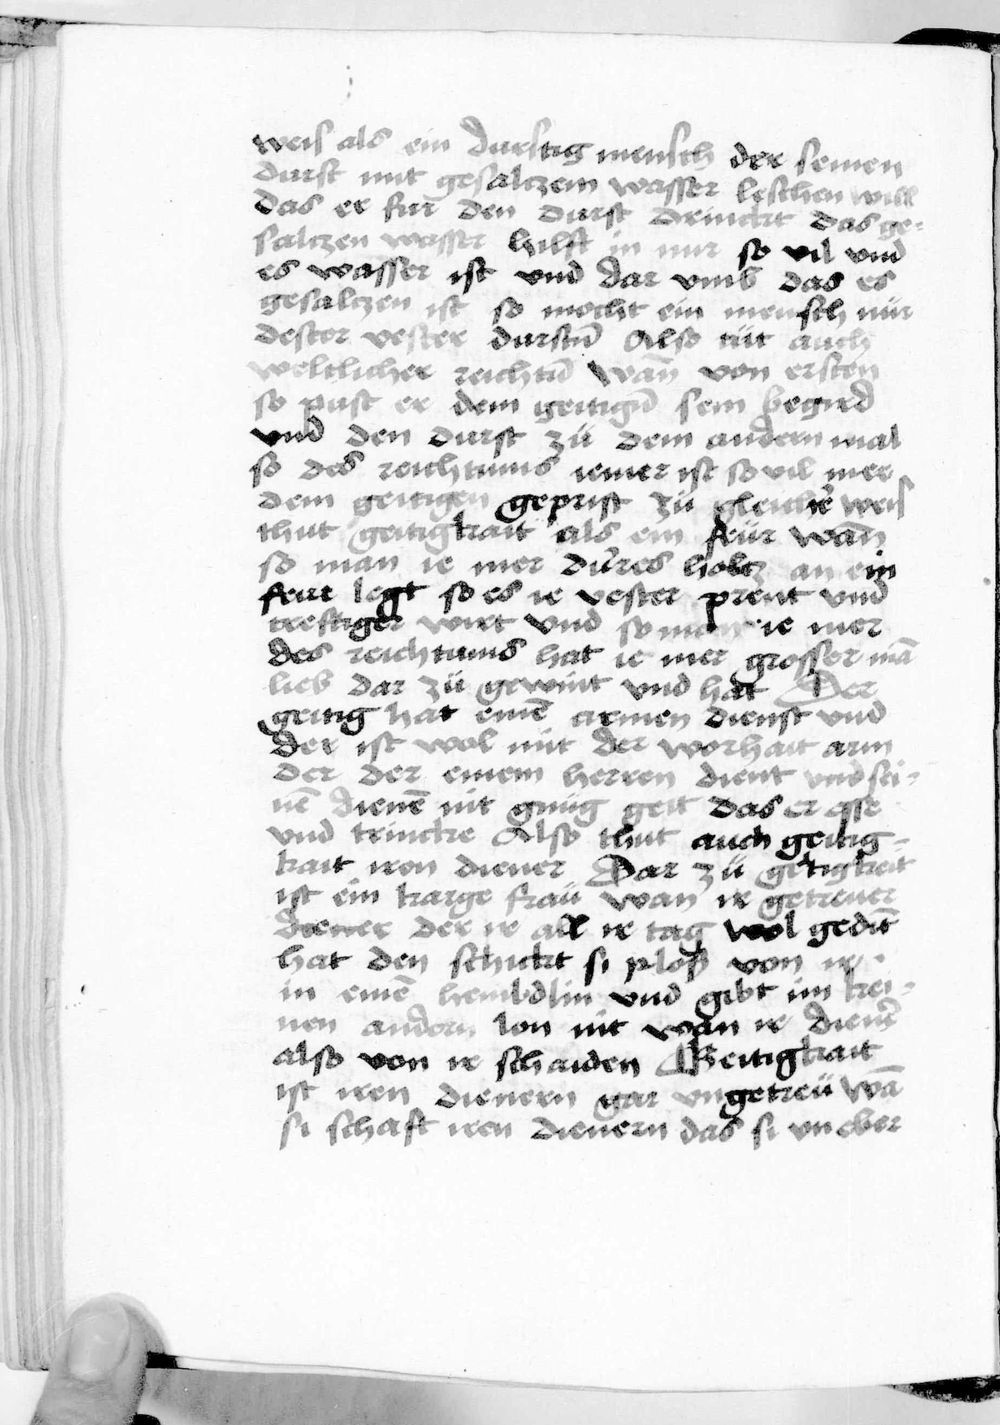 weis als ein durstig mensch der seinen
durst mit gesalczem wasser leschen will
das er fur den durst drinckt das ge-
salczen wasser hilft in nur so vil vnd
es wasser ist vnd dar vmb das es
gesalczen ist so mocht ein mensch nür
dester vester durstñ Also tüt auch
weltlicher reichtũ wañ von ersten
so püst er dem geitigñ sein begird
vnd den durst zü dem andern mal
so des reichtums iemer ist so vil mer
dem geitigen geprist zü gleicher weis
thut geitigkait als ein feür wañ
so man ie mer dürres holcz an ein
feur legt so es ie vester prent vnd
kreftiger wirt vnd so man ie mer
des reichtums hat ie mer grosser mã
lieb dar zü gewint vnd hat Der
geitig hat einē armen dienst vnd
der ist wol mit der worhait arm
der der einem herren dient vnd sei-
nē dienē nit gnug geit das er esse
vnd trincke Also thut auch geitig-
kait iren diener Dar zü geitigkeit
ist ein karge fraü wan ir getrewer
diener der ir all ir tag wol gedīt
hat den schickt si plos von ir
in einē hembdlin vnd gibt im kei-
nen andern lon nit wan ir diener
also von ir schaiden Geitigkait
ist iren dienern gar vngetreü wã
si schaft iren dienern das si vn eber